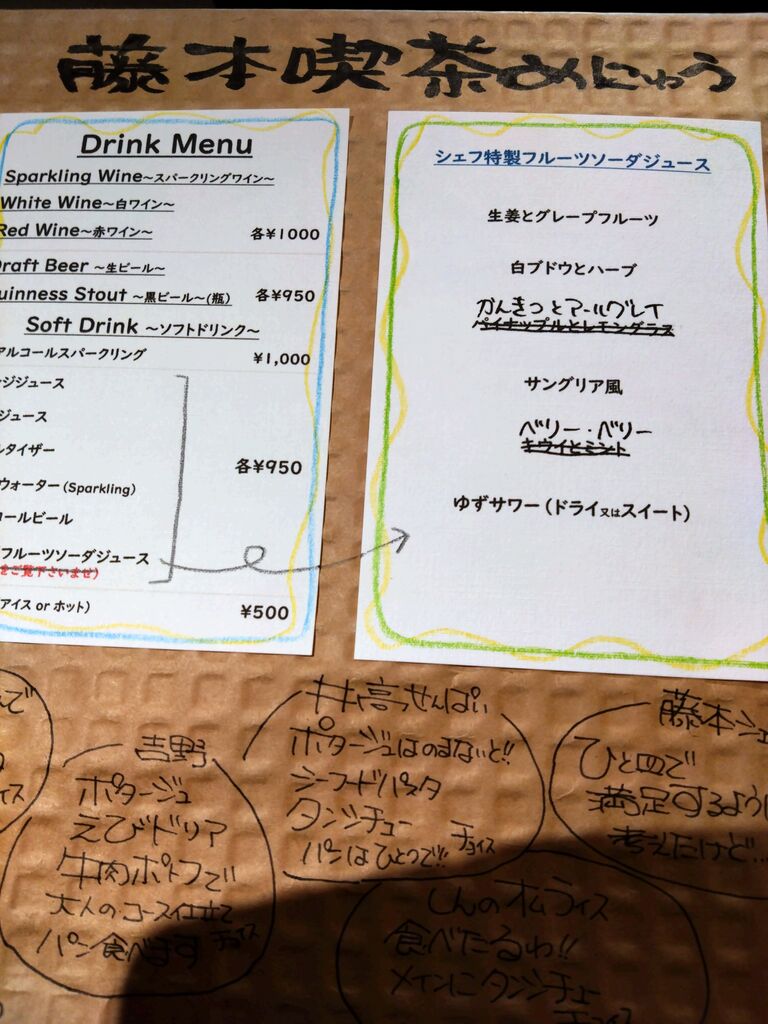 藤本喫茶めにゅう
Drink Menu
Sparkling Wine～スパークリングワイン～
White Wine～白ワイン～
Red Wine～赤ワイン～ 各¥1000
Draft Beer ～生ビール～
uinness Stout ～黒ビール～(瓶) 各¥950
Soft Drink ～ソフトドリンク～
アルコールスパークリング ¥1,000
ジジュース
ジュース
タイザー
各¥950
ウォーター(Sparkling)
コールビール
フルーツソーダジュース
をご覧下さいませ)
アイス or ホット) ¥500
シェフ特製フルーツソーダジュース
生姜とグレープフルーツ
白ブドウとハーブ
かんきつとアールグレイ
パイナップルとレモングラス
サングリア風
ベリー・ベリー
キウイとミント
ゆずサワー(ドライ又はスイート)
で
イス
吉野
ポタージュ
えびドリア
牛肉ポトフで
大人のコース仕立て
パン食べます チョイス
井高せんぱい
ポタージュはのまないと!!
シーフードパスタ
タンシチュー
パンはひとつで!! チョイス
藤本シェ
ひと皿で
満足するように
考えたけど…
しんのオムライス
食べたるわ!!
メインにタンシチュー
チョイス